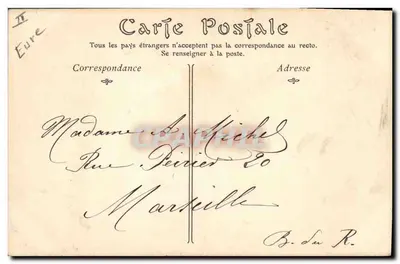 II
Eure
Carte Postale
Tous les pays étrangers n'acceptent pas la correspondance au recto.
Se renseigner à la poste.
Correspondance
Adresse
Madame A. Michel
Rue 20
Marseille
B. du R.